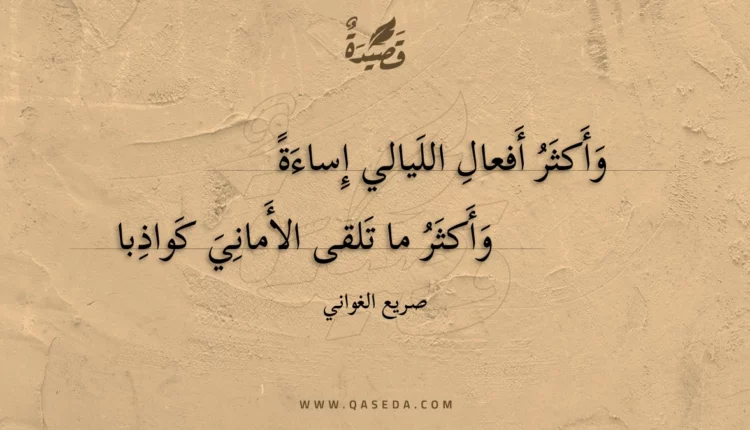 قَصِيْدَةٌ
وَأَكثَرُ أَفعالِ اللَيالي إِساءَةً
وَأَكثَرُ ما تَلقى الأَمانِيَ كَواذِبا
صريع الغواني
WWW.QASEDA.COM